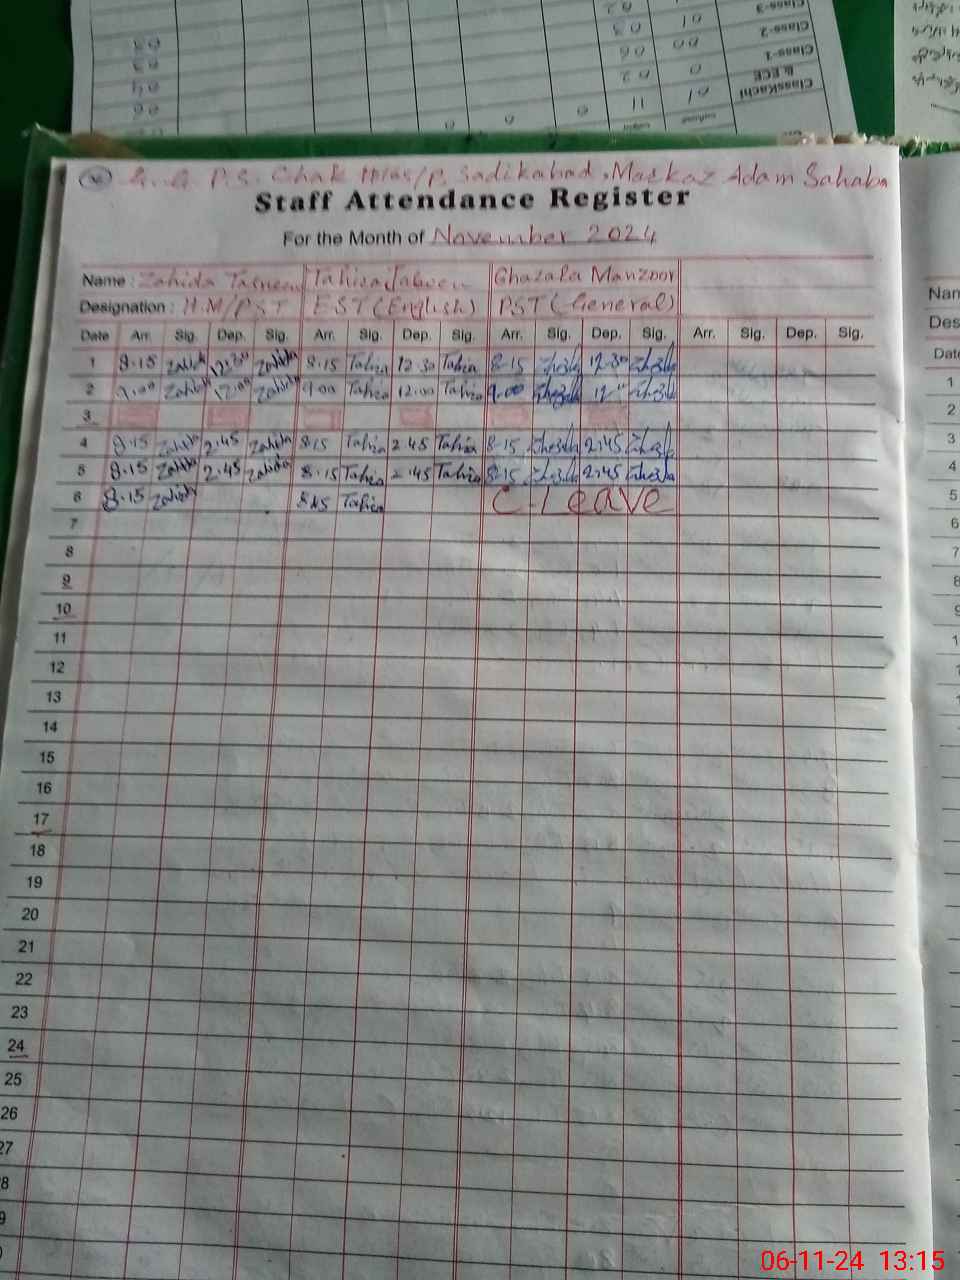 G. G. P.S. Chak P. Sadikabad, Markaz Adam Sahaba
Staff Attendance Register
For the Month of November 2024
Name : Zahida Tasneem Tahira Jabeen Ghazala Manzoor
Designation : H.M/PST EST (English) PST (General)
Date Arr. Sig. Dep. Sig. Arr. Sig. Dep. Sig. Arr. Sig. Dep. Sig. Arr. Sig. Dep. Sig.
1 8.15 Zahida 12.30 Zahida 8.15 Tahira 12 30 Tahira 8-15 12.30
2 9.00 Zahida 12.00 Zahida 9.00 Tahira 12.00 Tahira 9.00 12.00
3
4 8.15 Zahida 2.45 Zahida 8.15 Tahira 2 45 Tahira 8-15 2.45
5 8.15 Zahida 2.45 Zahida 8.15 Tahira 2.45 Tahira 8-15 2.45
6 8.15 Zahida 8.15 Tahira C-Leave
7
8
9
10
11
12
13
14
15
16
17
18
19
20
21
22
23
24
25
26
27
Class-3
Class-2
Class-1
ClassKachi
Nam
Des
Date
1
2
3
4
5
6
7
8
06-11-24 13:15